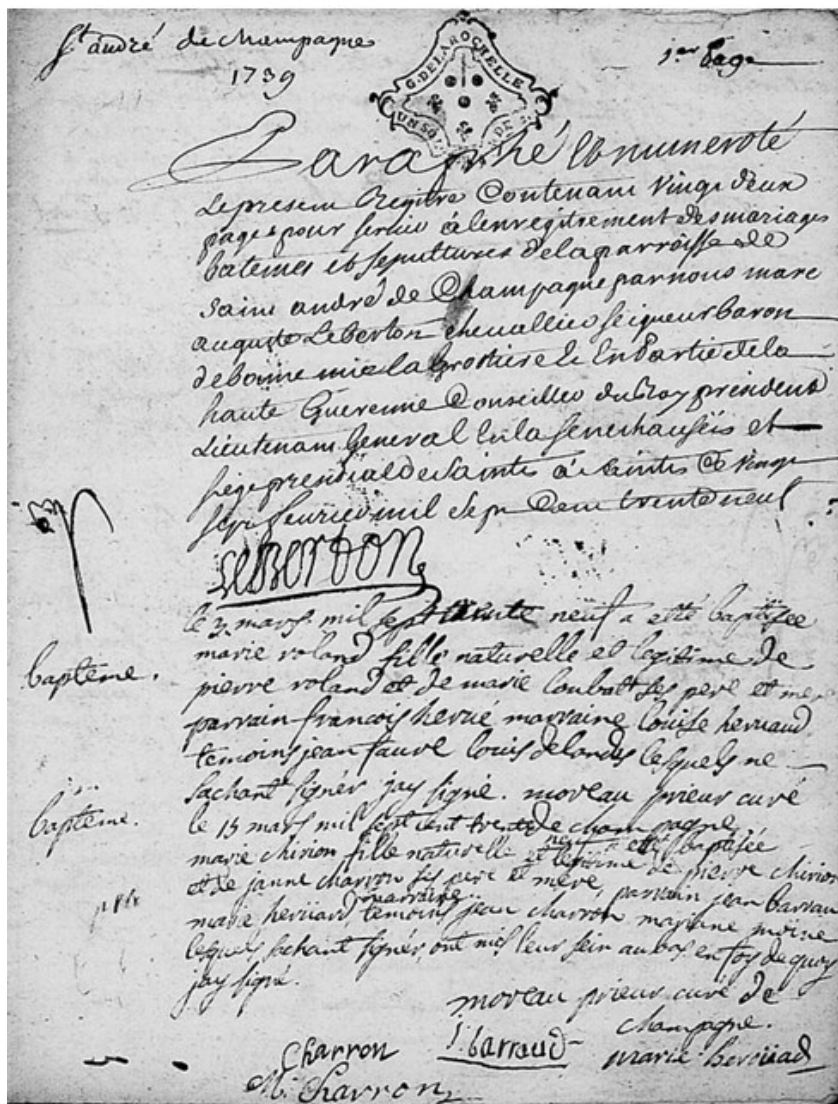 St andré de champagne
1739
G. DE LA ROCHELLE
UN SOL
1er page
Paraphé et numeroté
Le present Registre Contenant vingt deux
pages pour servir à lenregistrement des mariages
batemes et sepultures de la parroisse de
saint andré de Champagne par nous marc
auguste Leberton chevallier seigneur baron
de bonne mie la
En Partie de la
haute Guerenne Conseiller du Roy president
Lieutenant General En la senechaussée et
siege presidial de saintes à saintes Ce vingt
sept feurier mil sept Cent trente neuf
LeBerton
le 3 mars mil sept trente neuf a etté baptisée
bapteme.
marie roland fille naturelle et legitime de
pierre roland et de marie ses pere et mere
parrain francois hervé marraine louise heruaud
temoins jean faure louis delandes lesquels ne
sachant signér jay signé. moreau prieur curé
de champagne
bapteme.
le 15 mars mil sept cent trente
neuf a etté baptisée
marie chirion fille naturelle et legitime de pierre chirion
et de janne charron ses pere et mere, parrain jean barraud
marraine
marie heruard temoins jean charron mariane moine
lesquels sachant signér ont mis leur sein au bas en foy de quoy
jay signé.
moreau prieur curé de
champagne.
Charron
J. barraud
marie
M. Charron